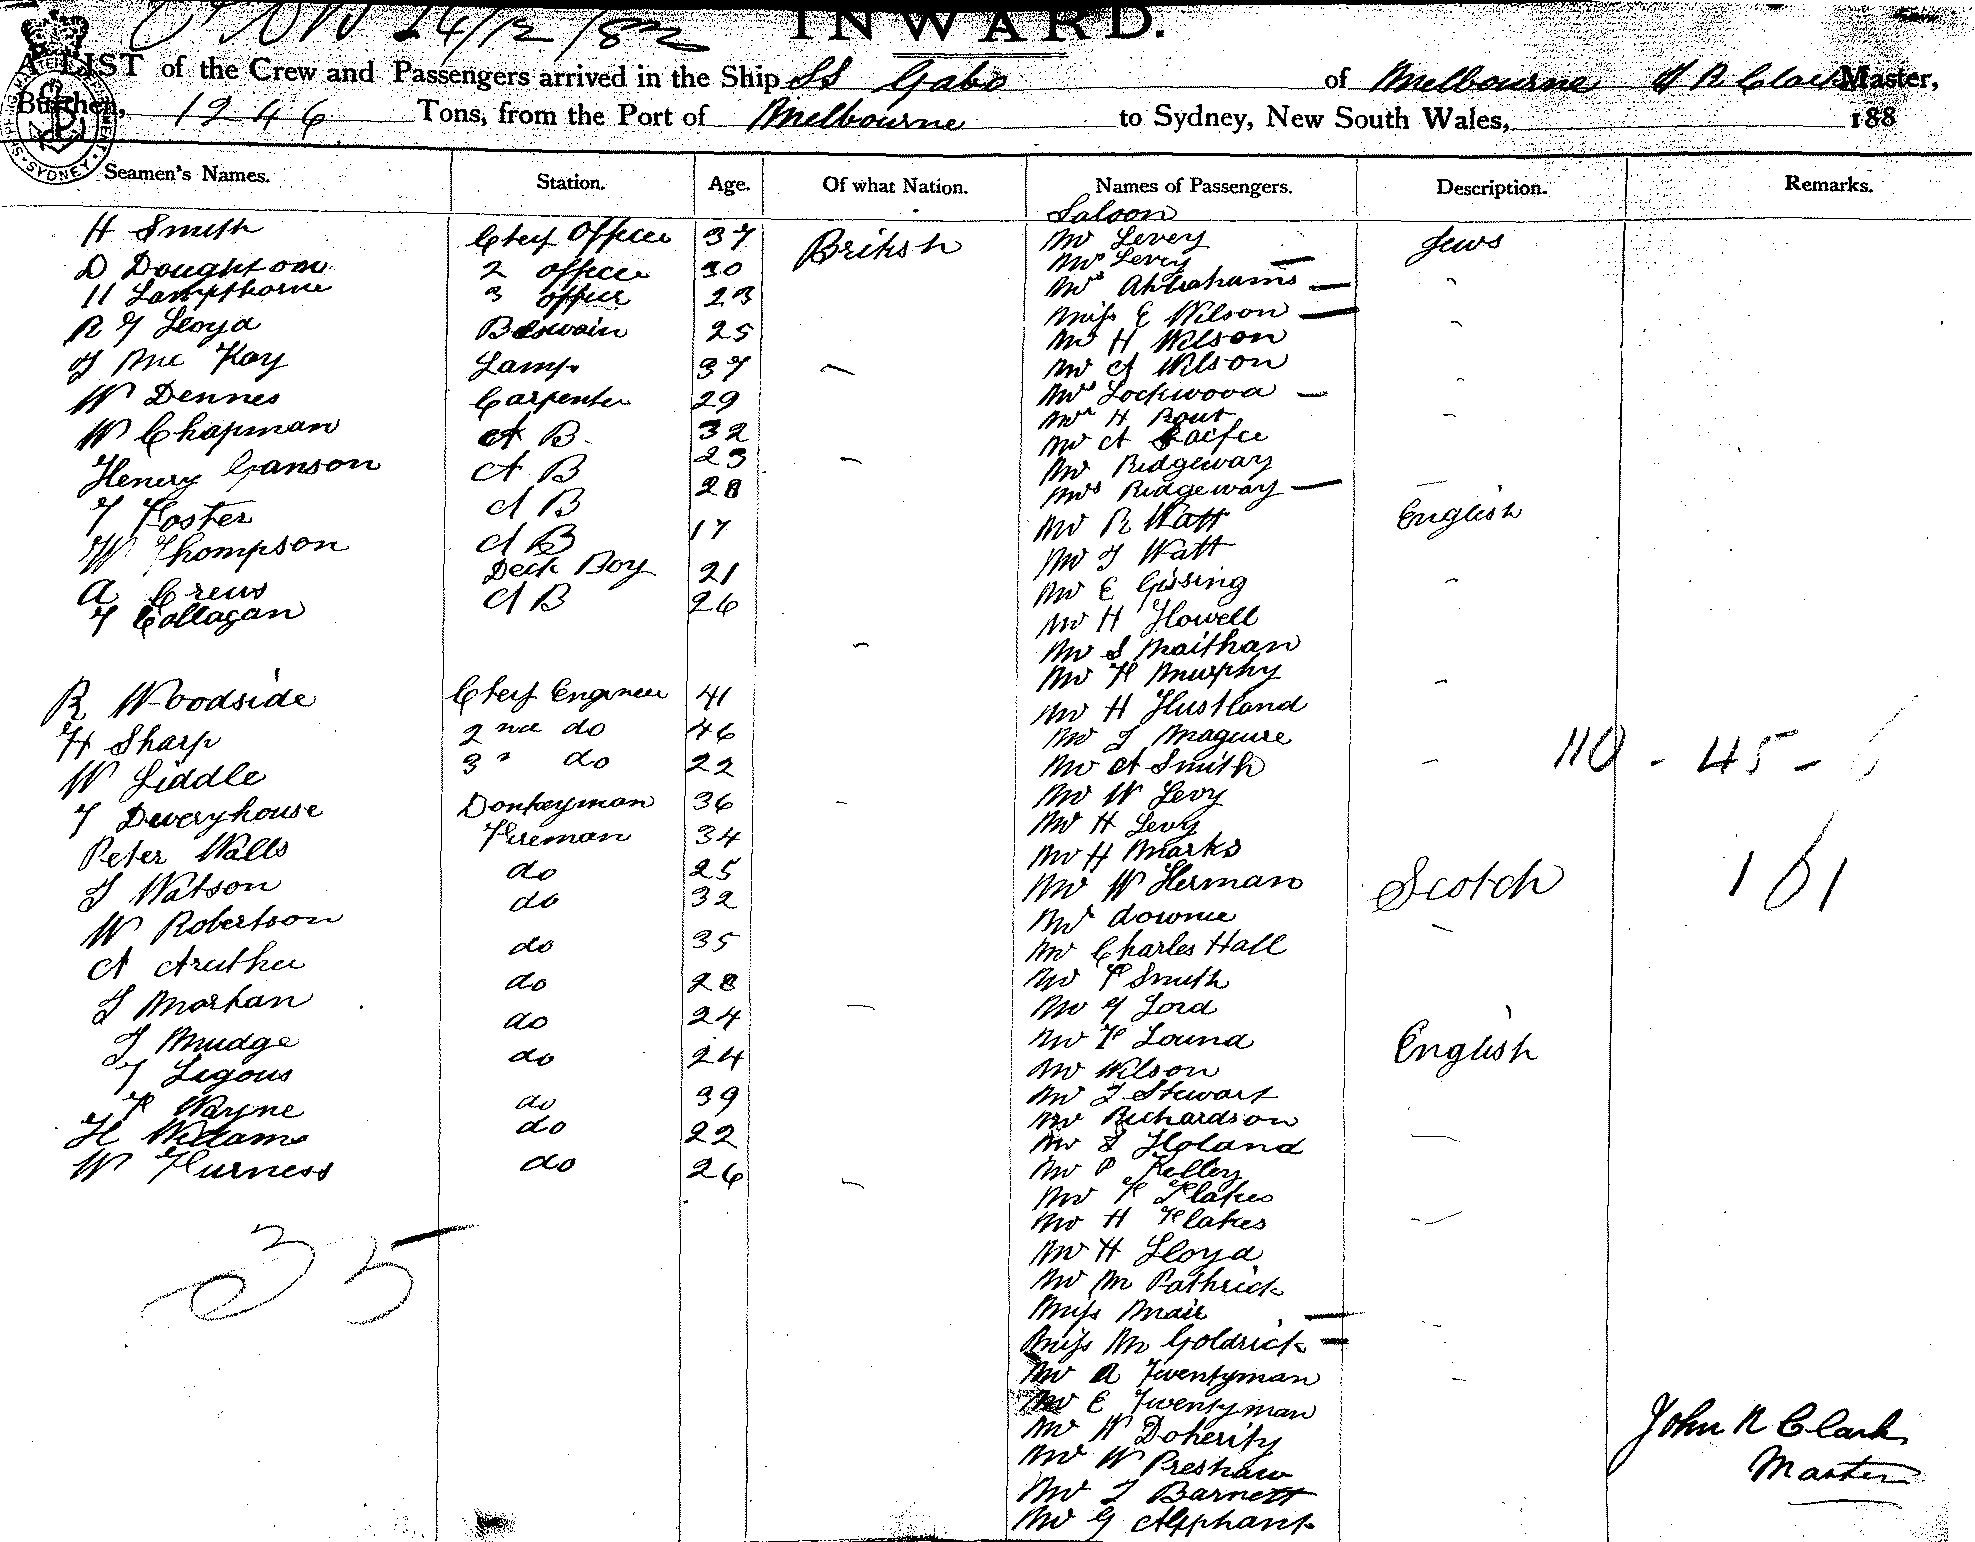 26/12/82
INWARD.
A LIST of the Crew and Passengers arrived in the Ship SS Gabo of Melbourne J R Clark Master,
Burthen, 1946 Tons, from the Port of Melbourne to Sydney, New South Wales, 188
Seamen's Names. Station. Age. Of what Nation. Names of Passengers. Description. Remarks.
Saloon
H Smith Chief Officer 37 British Mr Levey Jews
Mrs Levey —
D Doughtone 2 Officer 30 Mrs Abrahams —
H Lampthorne 3 officer 23 Miss E Wilson —
R J Lloyd Boswain 25 Mr H Wilson
J McKay Lamps 37 Mr A Wilson
W Dennes Carpenter 29 Mrs Lockwood —
W Chapman A B 32 Mr H Bout
23 Mr A
Henry Ganson A B 28 Mr Ridgeway
Mrs Ridgeway —
T Foster A B 17 Mr R Watt English
W Thompson A B Mr J Watt
Deck Boy 21 Mr E Gissing
A Crews A B 26 Mr H Howell
T Collagan Mr S Maithan
Mr F Murphy
R Woodside Chief Engineer 41 Mr H Hustland
H Sharp 2nd do 46 Mr J Maguire 110 - 45 -
W Liddle 3" do 22 Mr A Smith
T Deveryhouse Donkeyman 36 Mr W Levy
Peter Walls Fireman 34 Mr H Levy
Mr H Marks
J Watson do 25 Mr W Herman Scotch 161
W Robertson do 32 Mr Downie
A do 35 Mr Charles Hall
J Morhan do 28 Mr F Smith
do 24 Mr G Lord
J Mudge do 24 Mr F Lound English
T Ligous Mr Wilson
F Wayne do 39 Mr J Stewart
H Willams do 22 Mr Richardson
Mr S Holand
W Furness do 26 Mr P Kelley
Mr F Flakes
35 Mr H Flakes
Mr H Lloyd
Mr M Pathrick
Miss Mair —
Miss M Goldrick —
Mr A Twentyman
Mr E Twentyman
Mr W Doherity John R Clark
Mr W Preshaw Master
Mr J Barnett
Mr G Allphant